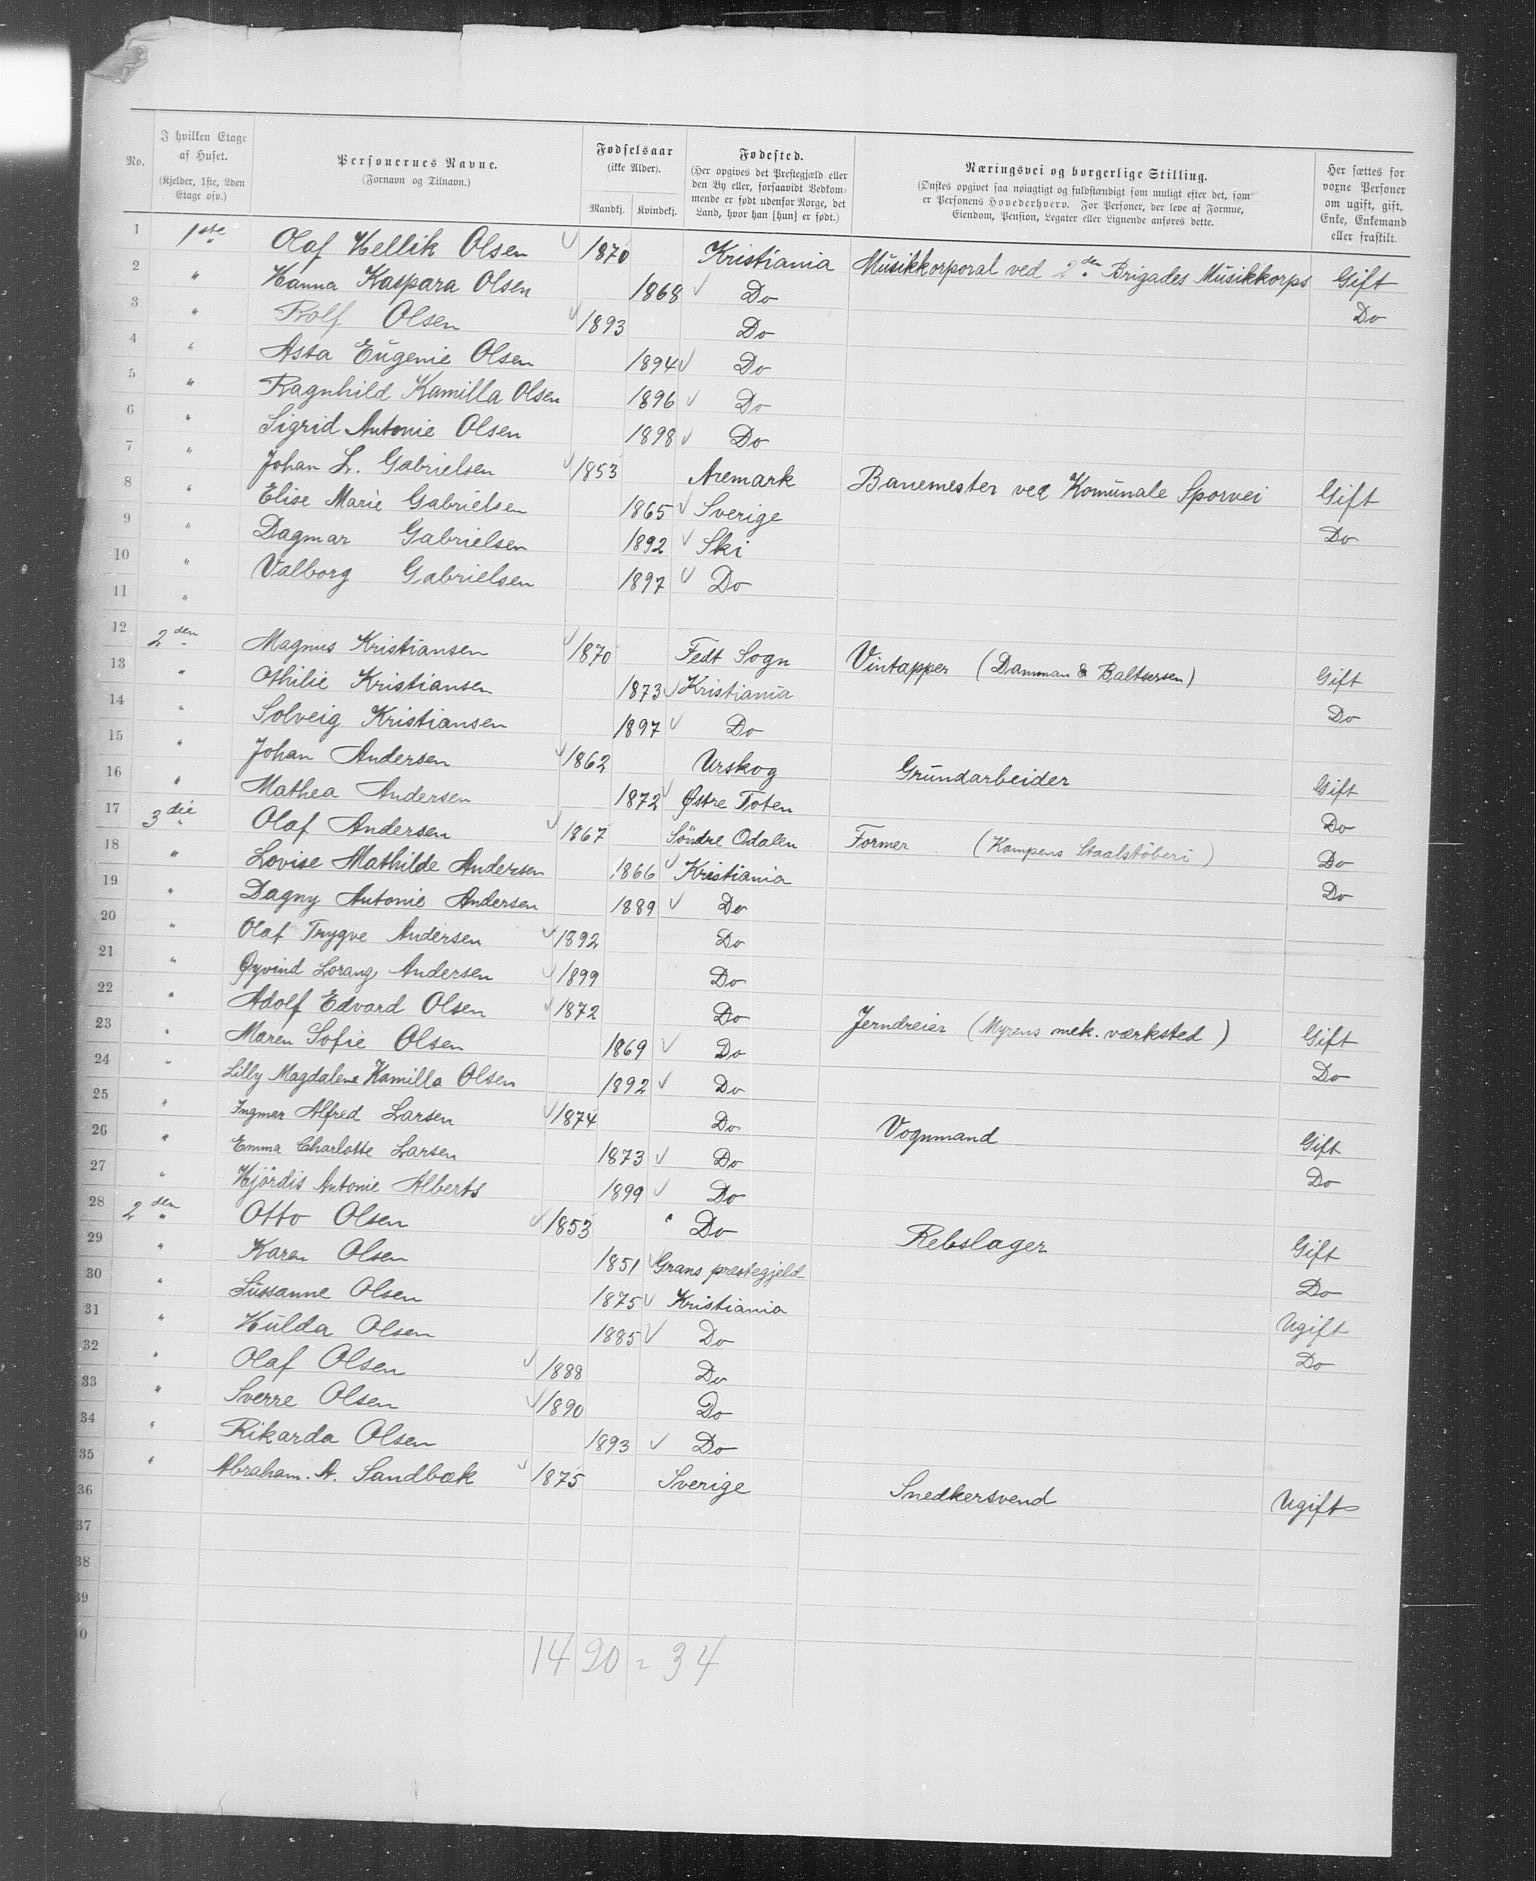 No.
I hvilken Etage af Huset. (Kjelder, 1ste, 2den Etage osv.)
Personernes Navne. (Fornavn og Tilnavn.)
Fødselsaar (ikke Alder). Mandkj. Kvindekj.
Fødested. (Her opgives det Prestegjæld eller den By eller, forsaavidt Vedkommende er født udenfor Norge, det Land, hvor han [hun] er født.)
Næringsvei og borgerlige Stilling. (Ønskes opgivet saa nøiagtigt og fuldstændigt som muligt efter det, som er Personens Hovederhverv. For Personer, der leve af Formue, Eiendom, Pension, Legater eller Lignende anføres dette.)
Her sættes for voxne Personer om ugift, gift, Enke, Enkemand eller fraskilt.
1 1ste Olaf Hellik Olsen 1870 Kristiania Musikkorporal ved 2den Brigades Musikkorps Gift
2 " Hanna Kaspara Olsen 1868 Do Do
3 " Rolf Olsen 1893 Do
4 " Asta Eugenie Olsen 1894 Do
5 " Ragnhild Kamilla Olsen 1896 Do
6 " Sigrid Antonie Olsen 1898 Do
7 " Johan L. Gabrielsen 1853 Aremark Banemester ved Komunale Sporvei Gift
8 " Elise Marie Gabrielsen 1865 Sverige Do
9 " Dagmar Gabrielsen 1892 Ski
10 " Valborg Gabrielsen 1897 Do
11 "
12 2den Magnus Kristiansen 1870 Fedt Sogn Vintapper (Damman & Baltsersen) Gift
13 " Othilie Kristiansen 1873 Kristiania Do
14 " Solveig Kristiansen 1897 Do
15 " Johan Andersen 1862 Urskog Grundarbeider Gift
16 " Mathea Andersen 1872 Østre Toten Do
17 3die " Olaf Andersen 1867 Söndre Odalen Former (Kampens Staalstöberi) Do
18 " Lovise Mathilde Andersen 1866 Kristiania Do
19 " Dagny Antonie Andersen 1889 Do
20 " Olaf Trygve Andersen 1892 Do
21 " Øyvind Lorang Andersen 1899 Do
22 " Adolf Edvard Olsen 1872 Do Jerndreier (Myrens mek. værksted) Gift
23 " Maren Sofie Olsen 1869 Do Do
24 " Lilly Magdalene Kamilla Olsen 1892 Do
25 " Ingmar Alfred Larsen 1874 Do Vognmand Gift
26 " Emma Charlotte Larsen 1873 Do Do
27 " Hjördis Antonie Alberts 1899 Do
28 2den " Otto Olsen 1853 Do Rebslager Gift
29 " Karen Olsen 1851 Grans prestegjeld Do
30 " Sussanne Olsen 1875 Kristiania Ugift
31 " Hulda Olsen 1885 Do Do
32 " Olaf Olsen 1888 Do
33 " Sverre Olsen 1890 Do
34 " Rikarda Olsen 1893 Do
35 " Abraham. A. Sandbæk 1875 Sverige Snedkersvend Ugift
36
37
38
39
40
14 20 = 34